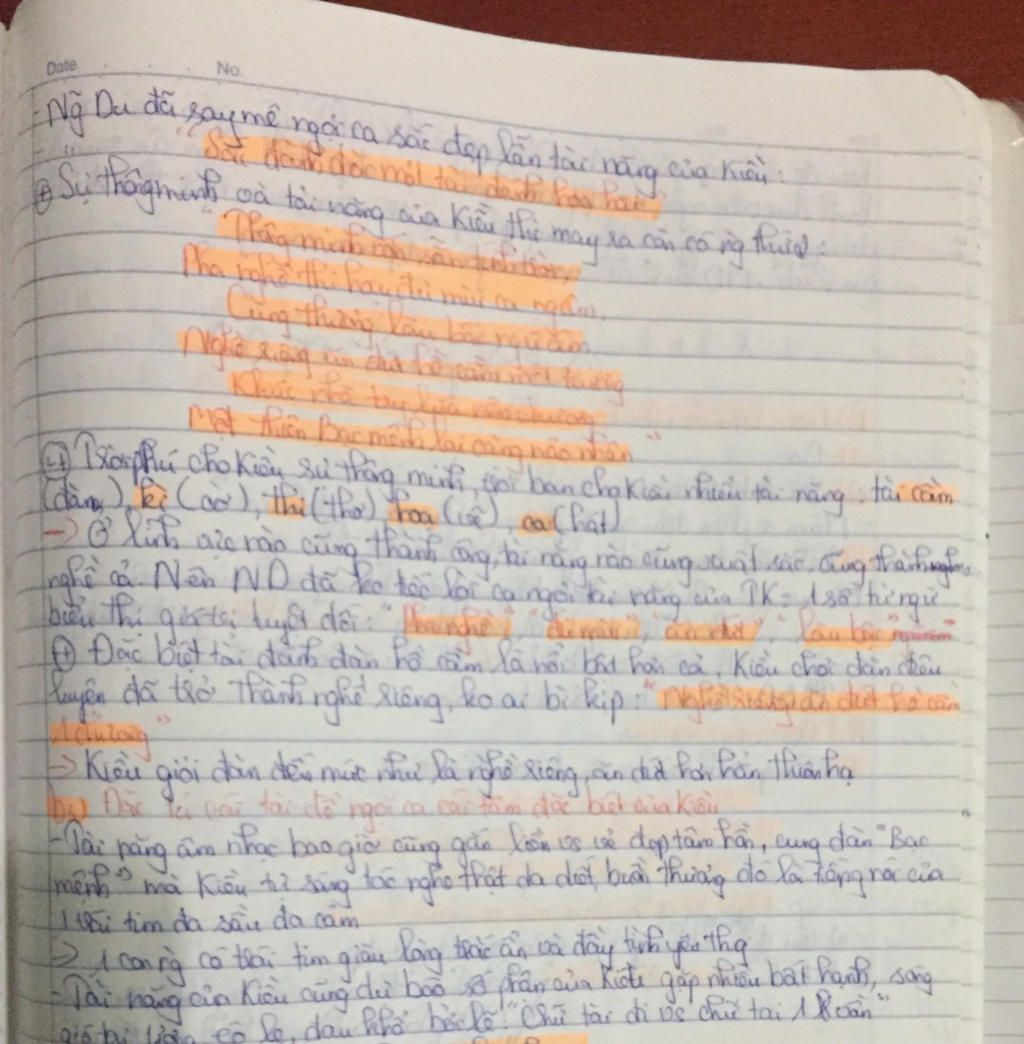 Date No.
- Ng̃ Du đã say mê ngợi ca sắc đẹp lẫn tài năng của Kiều:
"Sắc đành đòi một tài đành họa hai"
⊕ Sự thông minh và tài năng của Kiều thì may ra còn có ng thứ 2:
"Thông minh vốn sẵn tính trời,
Pha nghề thi họa đủ mùi ca ngâm.
Cung thương lầu bậc ngũ âm
Nghề riêng ăn đứt hồ cầm một trương
Khúc nhà tay lựa nên chương
Một thiên Bạc mệnh lại càng não nhân"
Trời phú cho Kiều sự thông minh, trời ban cho Kiều nhiều tài năng: tài cầm
(đàn), kì (cờ), thi (thơ) họa (vẽ), ca (hát)
-> Ở lĩnh vực nào cũng thành công, tài năng nào cũng xuất sắc, cũng thành
nghề cả. Nên ND đã ko tiếc lời ca ngợi tài năng của TK = 1 số từ ngữ
biểu thị giá trị tuyệt đối: "Pha nghề", "đủ mùi", "ăn đứt", "lầu bậc"
⊕ Đặc biệt tài đánh đàn hồ cầm là nổi bật hơn cả, Kiều chơi đàn điêu
luyện đã trở thành nghề riêng, ko ai bì kịp: "Nghề riêng ăn đứt hồ cầm
1 chương"
-> Kiều giỏi đàn đến mức như là nghề riêng, ăn đứt hơn hẳn thiên hạ
Đặc tả cái tài để ngợi ca cái tâm đặc biệt của Kiều
- Tài năng âm nhạc bao giờ cũng gắn liền vs vẻ đẹp tâm hồn, cung đàn "Bạc
mệnh" mà Kiều tự sáng tác nghe thật da diết, buồn thương đó là tiếng nói của
1 trái tim đa sầu đa cảm
-> 1 con ng có trái tim giàu lòng trắc ẩn và đầy tình yêu thg
- Tài năng của Kiều cũng dự báo số phận của Kiều gặp nhiều bất hạnh, sóng
đau khổ bởi lẽ: "Chữ tài đi vs chữ tai 1 vần"